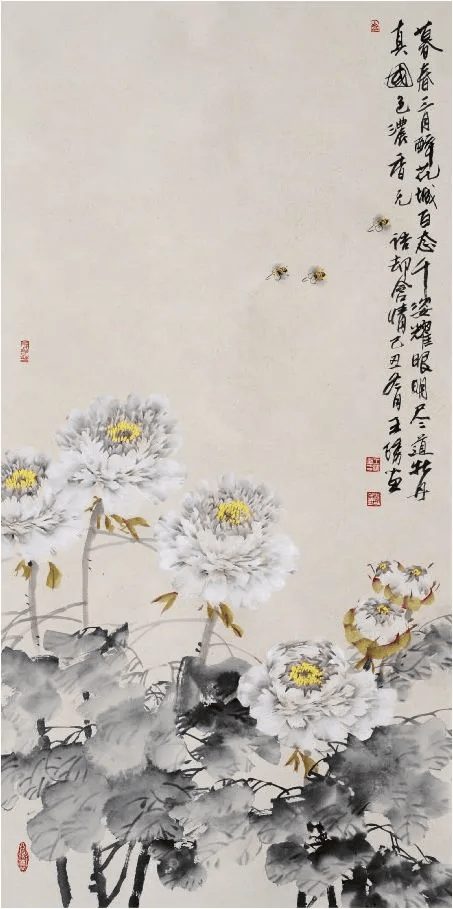 暮春三月醉花城百态千姿耀眼明尽道牡丹
真国色浓香无语却含情己丑冬月王绣画